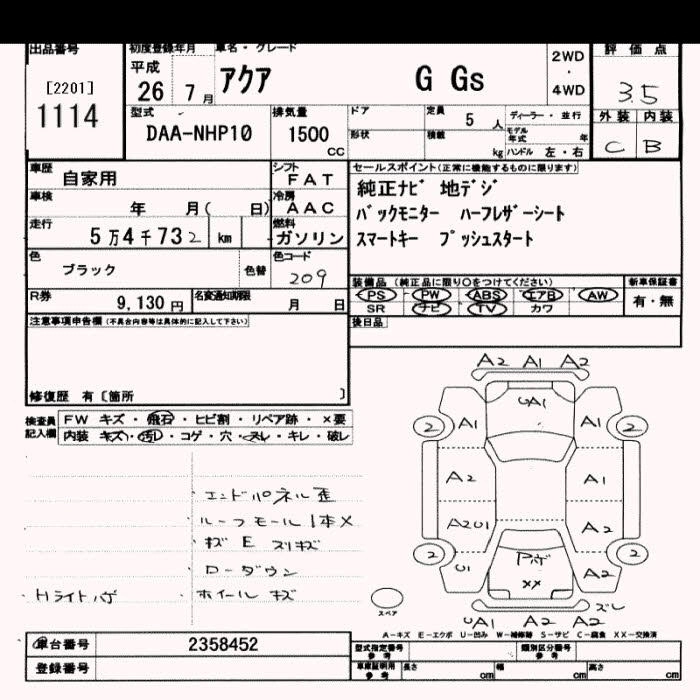 出品番号 初度登録年月 車名・グレード 2WD・4WD 評価点
[2201] 平成 アクア G Gs 3.5
1114 26 7月
型式 排気量 ドア 定員 5人 ディーラー・並行 外装 内装
DAA-NHP10 1500CC 形状 積載 kg モデル年式 年 C B
ハンドル 左・右
車歴 自家用 シフト FAT セールスポイント(正常に機能するものに限ります)
車検 年 月( 日) 冷房 AAC 純正ナビ 地デジ
走行 5万4千732 km 燃料 ガソリン バックモニター ハーフレザーシート
スマートキー プッシュスタート
色 ブラック 色替 色コード 209
装備品(純正品に限り○をつけてください) 新車保証書
R券 9,130円 名変通知期限 月 日 PS PW ABS エアB AW 有・無
SR ナビ TV カワ
注意事項申告欄(不具合内容等は具体的に記入して下さい) 後日品
修復歴 有〔箇所 〕
検査員記入欄 FW キズ・飛石・ヒビ割・リペア跡・×要
内装 キズ・汚レ・コゲ・穴・スレ・キレ・破レ
A2 A1 A2
UA1
2 A1 A1 2
A2 A1
A2U1 A2
2 U1 Pボ ×× A2 2
スペア
UA1 A2 A2 ズレ
エンドパネル歪
ルーフモール1本×
キズ E スリキズ
ローダウン
Hライトハゲ ホイールキズ
A-キズ E-エクボ U-凹み W-補修跡 S-サビ C-腐食 XX-交換済
車台番号 2358452 型式指定番号 参考 類別区分番号 参考
登録番号 車庫証明用 参考 長さ cm 幅 cm 高さ cm